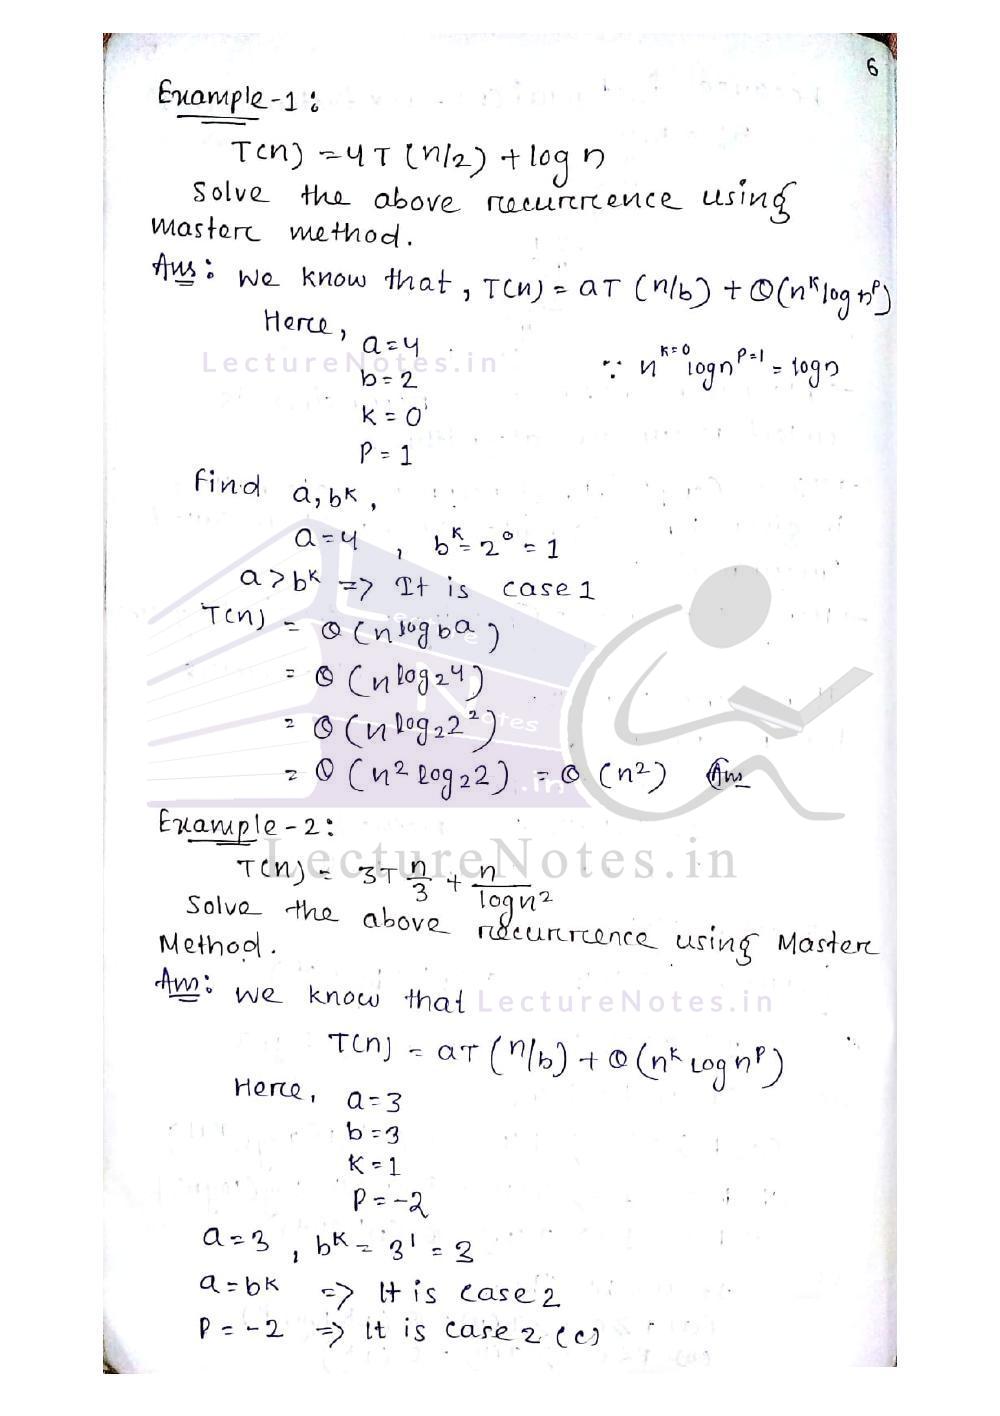 6
Example-1:
T(n) = 4T(n/2) + log n
Solve the above recurrence using
master method.
Ans: We know that, T(n) = aT(n/b) + θ(n^k log n^p)
Here,
a=4
∵ n^k=0 log n^p=1 = log n
LectureNotes.in
b=2
k=0
P=1
Find a, b^k,
a=4 , b^k = 2^0 = 1
a>b^k => It is case 1
T(n) = θ(n^log_b a)
= θ(n^log_2 4)
= θ(n^log_2 2^2)
= θ(n^2 log_2 2) = θ(n^2) Ans
Lecture
Notes
.in
Example-2:
LectureNotes.in
T(n) = 3T n/3 + n/log n^2
Solve the above recurrence using Master
Method.
Ans: We know that
LectureNotes.in
T(n) = aT(n/b) + θ(n^k log n^p)
Here, a=3
b=3
k=1
P=-2
a=3, b^k = 3^1 = 3
a=b^k => It is case 2
P=-2 => It is case 2(c)